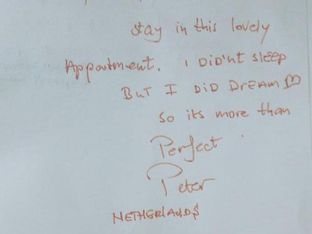 stay in this lovely
Appoutment. I DiD'nt slEEp
BUT I DiD DrEAM
so its more than
Perfect
Peter
NETHERLANDS